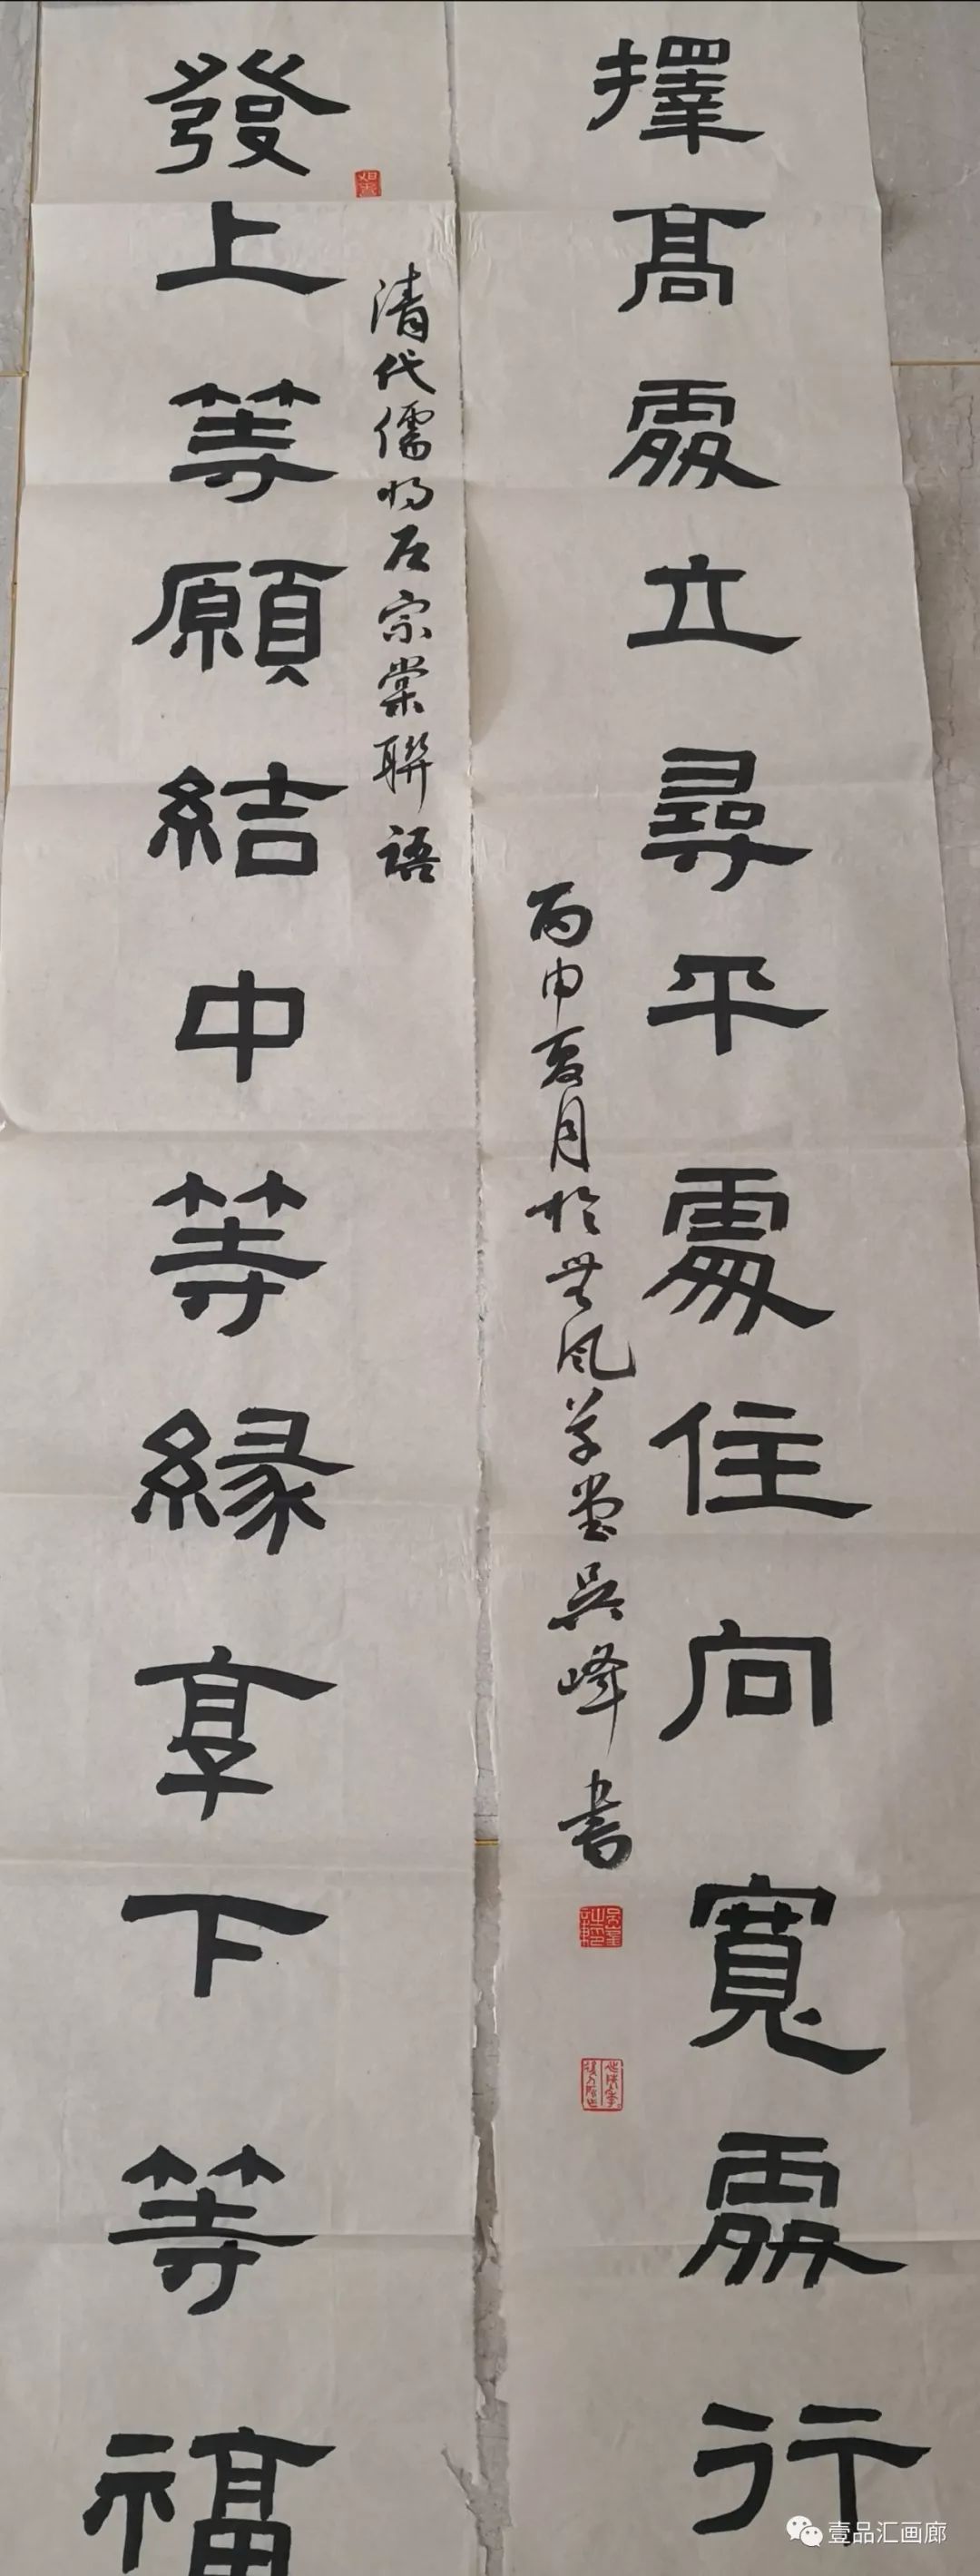 發上等願結中等緣享下等福
清代儒将左宗棠聯語
擇髙處立尋平處住向寬處行
丙申夏月於無風草堂吳峰書
壹品汇画廊